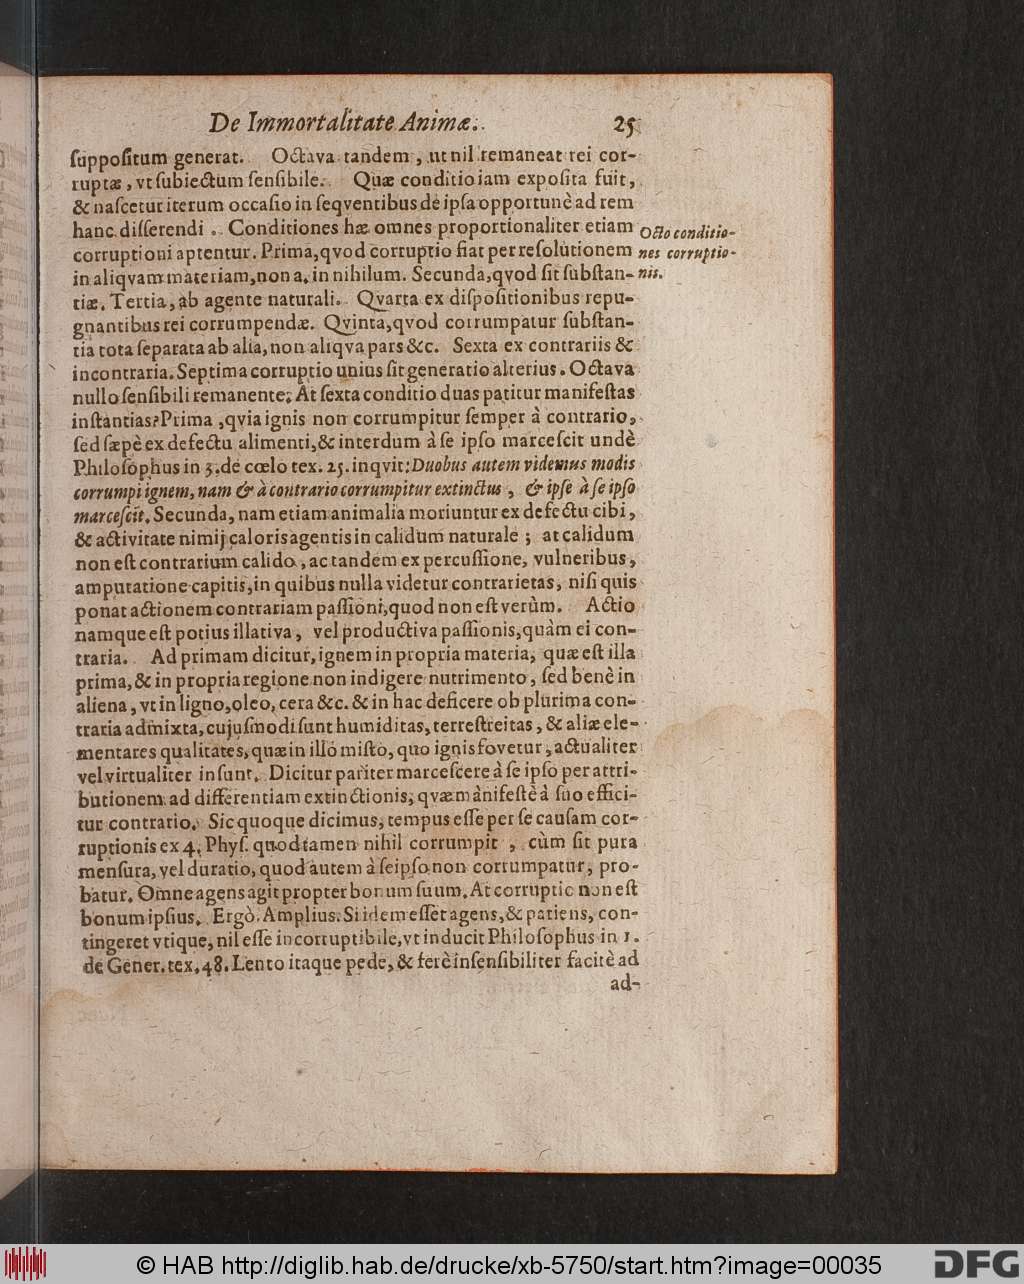 De Immortalitate Animæ.
25
ſuppoſitum generat. Octava tandem, ut nil remaneat rei cor-
ruptæ, vt ſubiectum ſenſibile. Quæ conditio iam expoſita fuit,
& naſcetur iterum occaſio in ſeqventibus de ipſa opportunè ad rem
hanc diſſerendi. Conditiones hæ omnes proportionaliter etiam
corruptioni aptentur. Prima, qvod corruptio fiat per reſolutionem
in aliqvam materiam, non a, in nihilum. Secunda, qvod ſit ſubſtan-
tiæ. Tertia, ab agente naturali. Qvarta ex diſpoſitionibus repu-
gnantibus rei corrumpendæ. Qvinta, qvod corrumpatur ſubſtan-
tia tota ſeparata ab alia, non aliqva pars &c. Sexta ex contrariis &
in contraria. Septima corruptio unius ſit generatio alterius. Octava
nullo ſenſibili remanente; At ſexta conditio duas patitur manifeſtas
inſtantias? Prima, qvia ignis non corrumpitur ſemper à contrario,
ſed ſæpè ex defectu alimenti, & interdum à ſe ipſo marceſcit undè
Philoſophus in 3. de cœlo tex. 25. inqvit: Duobus autem videmus modis
corrumpi ignem, nam & à contrario corrumpitur extinctus, & ipſe à ſe ipſo
marceſcit. Secunda, nam etiam animalia moriuntur ex defectu cibi,
& activitate nimij caloris agentis in calidum naturale; at calidum
non eſt contrarium calido, ac tandem ex percuſſione, vulneribus,
amputatione capitis, in quibus nulla videtur contrarietas, niſi quis
ponat actionem contrariam paſſioni, quod non eſt verùm. Actio
namque eſt potius illativa, vel productiva paſſionis, quàm ei con-
traria. Ad primam dicitur, ignem in propria materia, quæ eſt illa
prima, & in propria regione non indigere nutrimento, ſed benè in
aliena, vt in ligno, oleo, cera &c. & in hac deficere ob plurima con-
traria admixta, cujuſmodi ſunt humiditas, terreſtreitas, & aliæ ele-
mentares qualitates, quæ in illo miſto, quo ignis fovetur, actualiter
vel virtualiter inſunt. Dicitur pariter marceſcere à ſe ipſo per attri-
butionem ad differentiam extinctionis, qvæ manifeſtè à ſuo effici-
tur contrario. Sic quoque dicimus, tempus eſſe per ſe cauſam cor-
ruptionis ex 4. Phyſ. quod tamen nihil corrumpit, cùm ſit pura
menſura, vel duratio, quod autem à ſeipſo non corrumpatur, pro-
batur. Omne agens agit propter bonum ſuum. At corruptio non eſt
bonum ipſius. Ergò. Amplius. Si idem eſſet agens, & patiens, con-
tingeret vtique, nil eſſe incorruptibile, vt inducit Philoſophus in 1.
de Gener. tex. 48. Lento itaque pede, & ferè inſenſibiliter facitè ad
ad-
Octo conditio-
nes corruptio-
nis.
© HAB http://diglib.hab.de/drucke/xb-5750/start.htm?image=00035
DFG